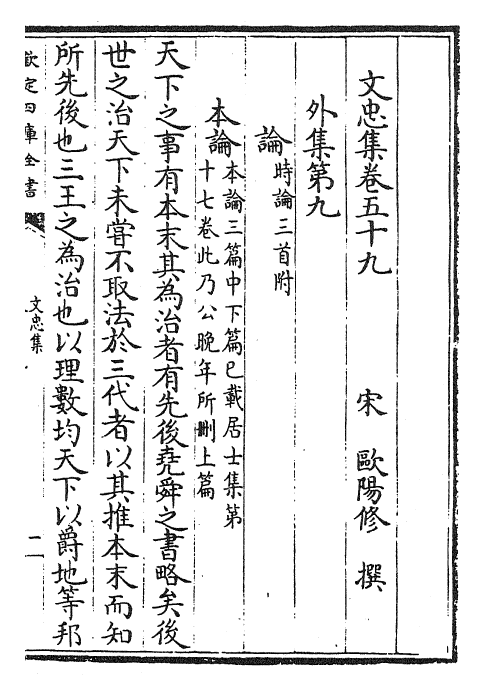 文忠集卷五十九
宋 歐陽修 撰
外集第九
論時論三首附
本論本論三篇中下篇已載居士集第
十七卷此乃公晚年所刪上篇
天下之事有本末其為治者有先後堯舜之書略矣後
世之治天下未甞不取法於三代者以其推本末而知
所先後也三王之為治也以理數均天下以爵地等邦
欽定四庫全書
文忠集
二